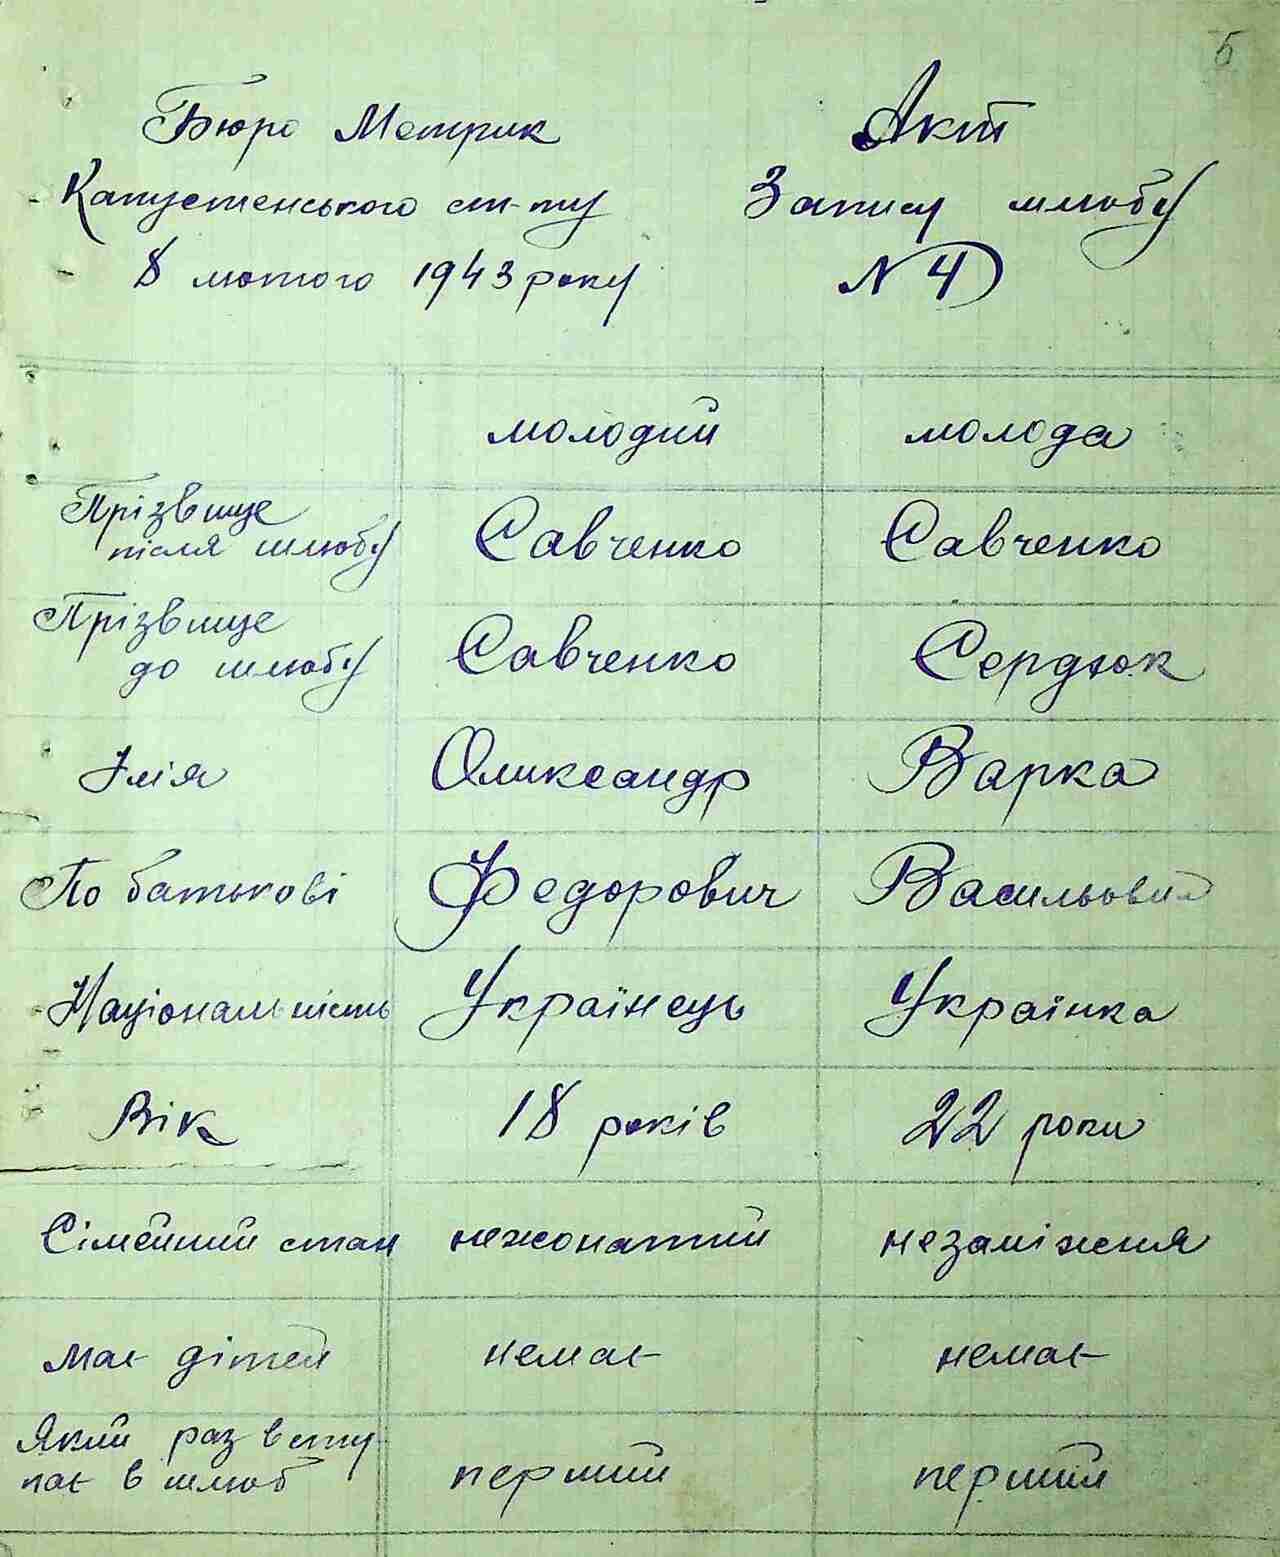 5
Бюро Метрик
Капустенського ст-ту
8 лютого 1943 року
Акт
Запису шлюбу
N 4
молодий молода
Прізвище
після шлюбу Савченко Савченко
Прізвище
до шлюбу Савченко Сердюк
Імія Олександр Варка
По батькові Федорович Васильовна
Національність Українець Українка
Вік 18 років 22 роки
Сімейний стан нежонатий незаміжня
має дітей немає немає
Який раз всту
пає в шлюб перший перший